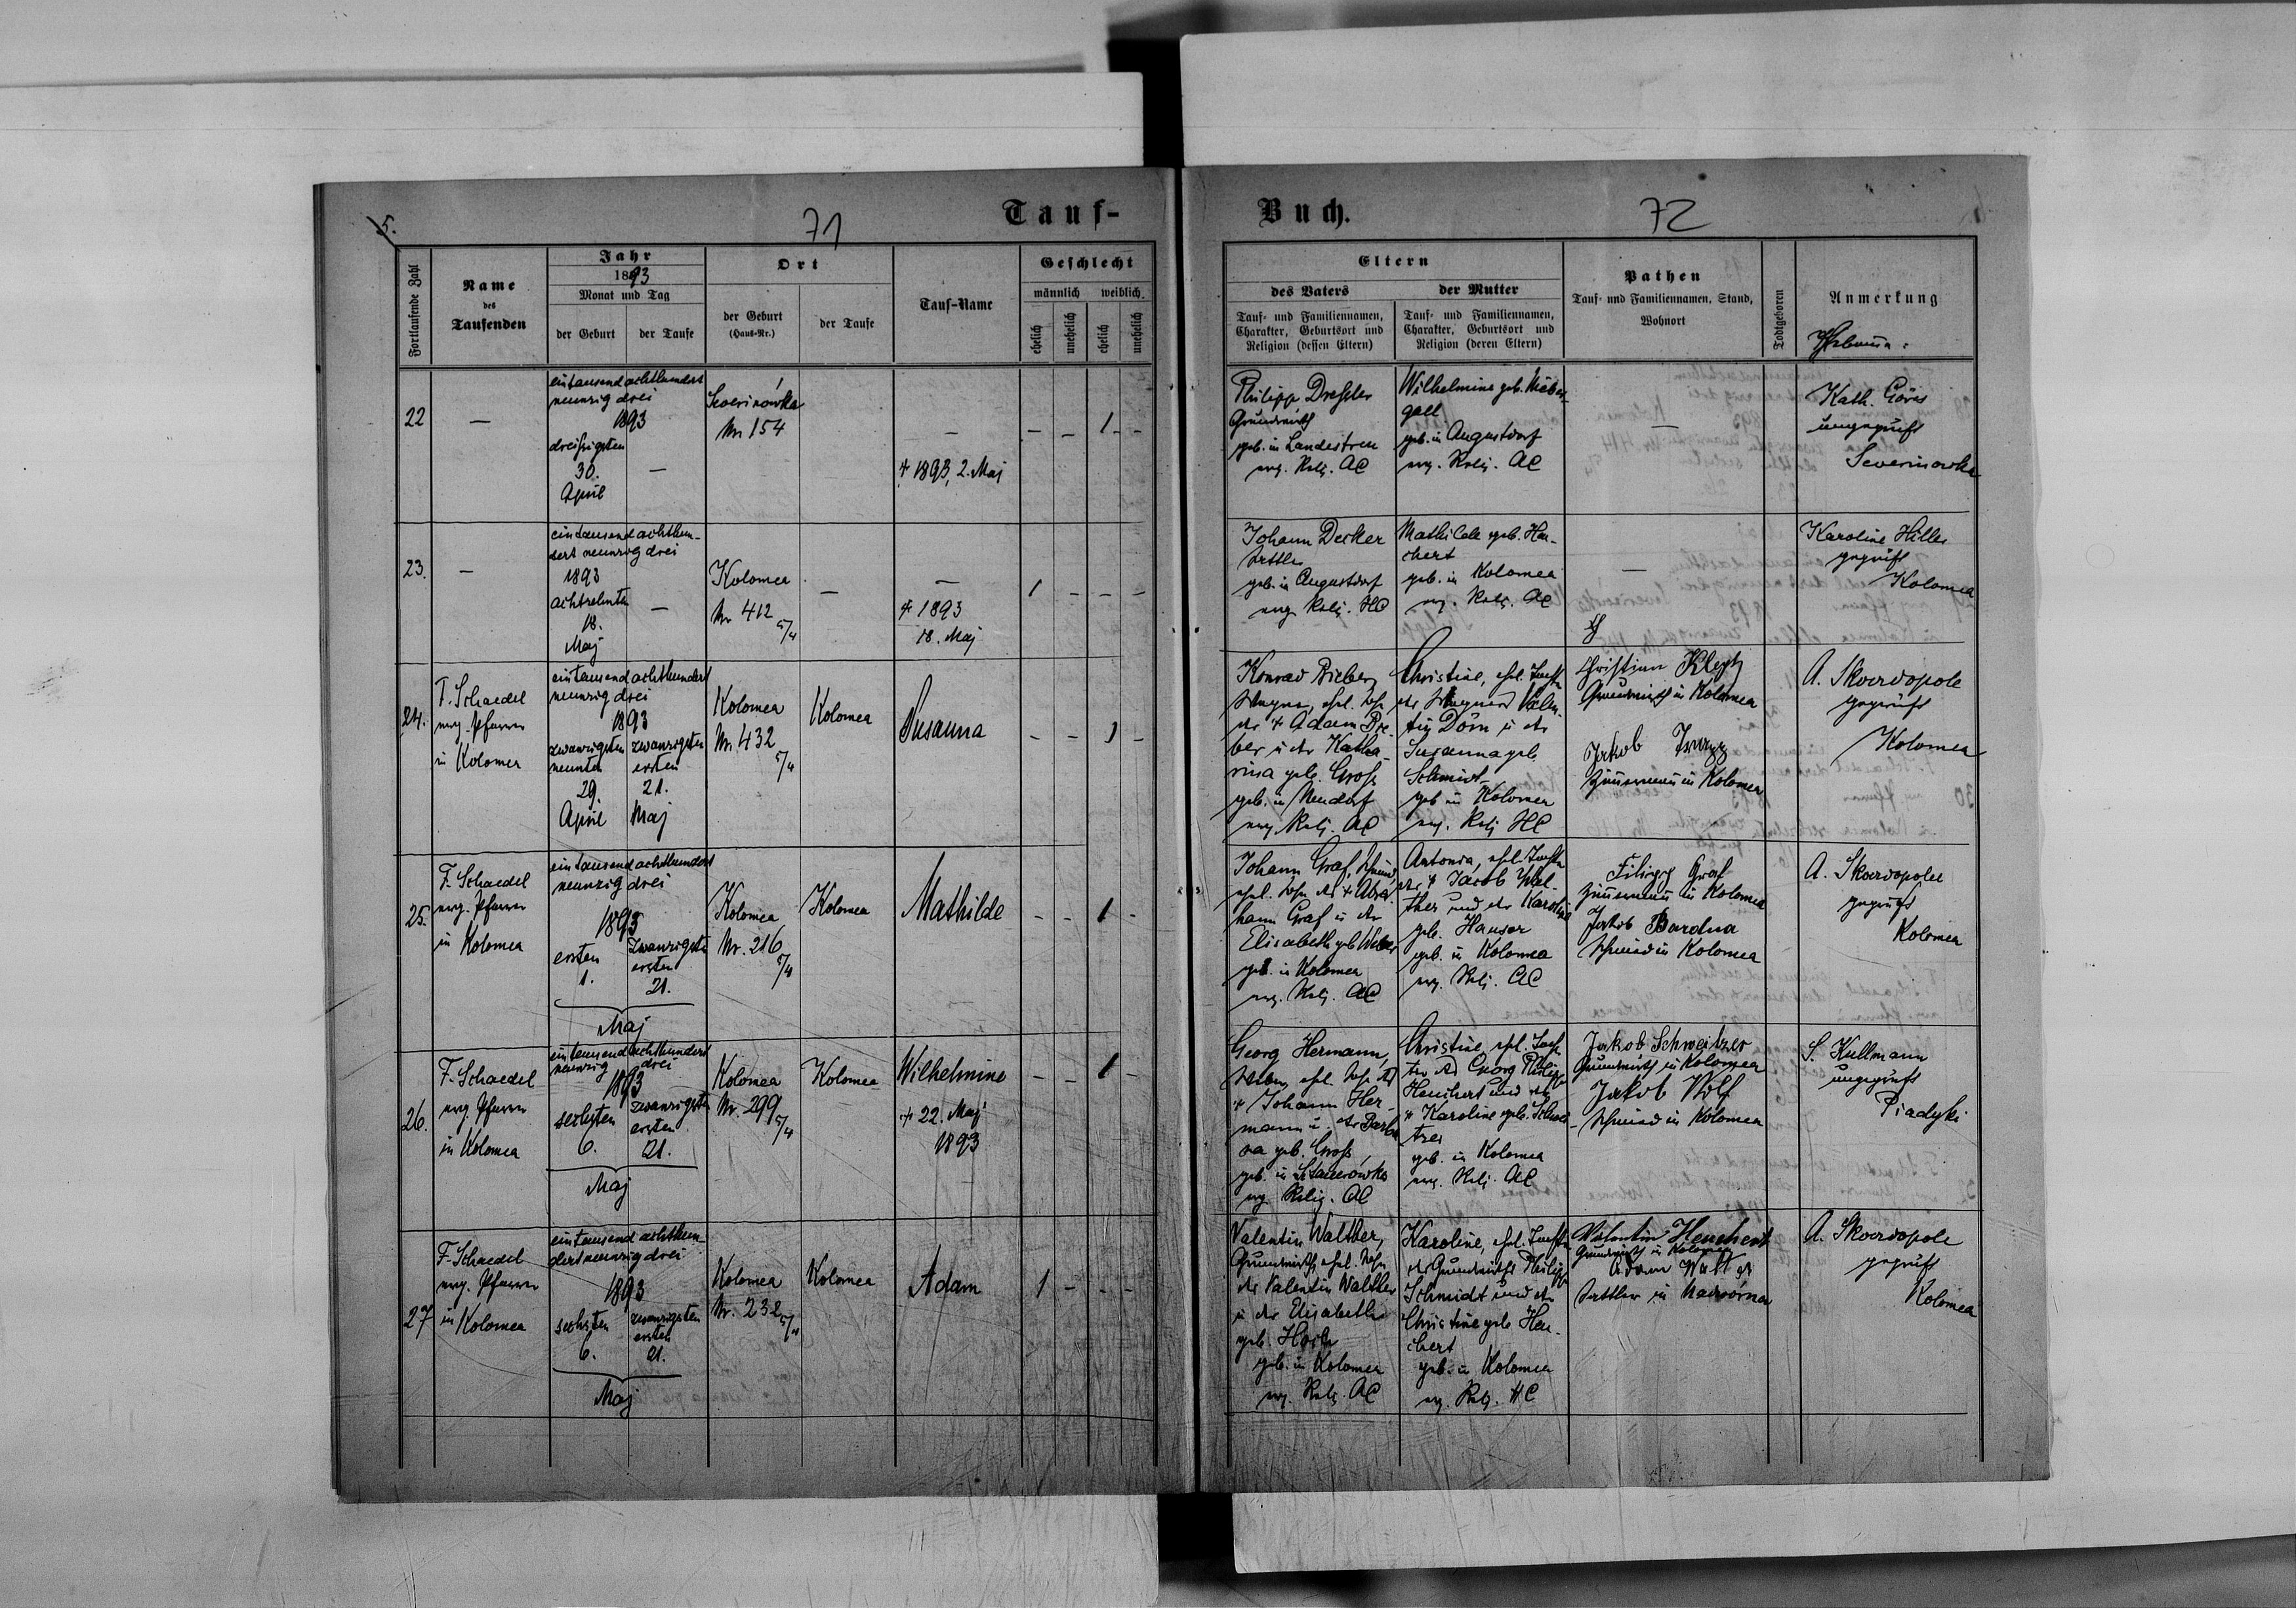 5.
71
Tauf-
Fortlaufende Zahl
Name
des
Taufenden
Jahr
1893
Monat und Tag
der Geburt
der Taufe
Ort
der Geburt
(Haus-Nr.)
der Taufe
Tauf-Name
Geschlecht
männlich
weiblich.
ehelich
unehelich
ehelich
unehelich
22
—
eintausend achthundert
neunzig drei
1893
dreißigsten
30.
April
—
Severinówka
Nr 154
—
† 1893, 2. Maj
— — 1 —
23.
—
eintausend achthun-
dert neunzig drei
1893
achtzehnten
18.
Maj
—
Kolomea
Nr 412 5/4
—
—
† 1893
18. Maj
1 — — —
24.
F. Schaedel
evg. Pfarrer
in Kolomea
eintausend achthundert
neunzig drei
1893
zwanzigsten zwanzigsten
neunten ersten
29. 21.
April Maj
Kolomea
Nr. 432 5/4
Kolomea
Susanna
— — 1 —
25.
F. Schaedel
evg. Pfarrer
in Kolomea
eintausend achthundert
neunzig drei
1893
ersten zwanzigsten
ersten
1. 21.
Maj
Kolomea
Nr. 216 5/4
Kolomea
Mathilde
— — 1 —
26.
F. Schaedel
evg. Pfarrer
in Kolomea
eintausend achthundert
neunzig drei
1893
sechsten zwanzigsten
ersten
6. 21.
Maj
Kolomea
Nr. 299 5/4
Kolomea
Wilhelmine
† 22. Maj
1893
— — 1 —
27
F. Schaedel
evg. Pfarrer
in Kolomea
eintausend achthun-
dert neunzig drei
1893
sechsten zwanzigsten
ersten
6. 21.
Maj
Kolomea
Nr. 232 5/4
Kolomea
Adam
1 — — —
Buch.
72
Eltern
des Vaters
Tauf- und Familiennamen,
Charakter, Geburtsort und
Religion (dessen Eltern)
der Mutter
Tauf- und Familiennamen,
Charakter, Geburtsort und
Religion (deren Eltern)
Pathen
Tauf- und Familiennamen, Stand,
Wohnort
Todtgeboren
Anmerkung
Philipp Dreßler
Grundwirth
geb. in Landestreu
evg. Relig. AC
Wilhelmine geb. Nieben-
gall
geb. in Augustdorf
evg. Relig. AC
—
Kath. Göres
ungeprüft
Severinowka
Johann Decker
Sattler
geb. in Augustdorf
evg. Relig. HC
Mathilde geb. Heu-
chert
geb. in Kolomea
evg. Relig. AC
—
Karoline Hiller
geprüft
Kolomea
Konrad Bieber,
Wagner, ehel. Sohn
des † Adam Bie-
ber u. der Katha-
rina geb. Groß
geb. in Neudorf
evg. Relig. AC
Christine, ehel. Tochter
des Wagners Valen-
tin Dörn u. der
Susanna geb.
Schmidt
geb. in Kolomea
evg. Relig. HC
Christian
Grundwirth in Kolomea
Jakob
Zimmermann in Kolomea
A. Skwordopole
geprüft
Kolomea
Johann Graf, Schmied
ehel. Sohn des † Abra-
ham Graf u. der
Elisabeth geb. Weber
geb. in Kolomea
evg. Relig. AC
Antonia, ehel. Tochter
des † Jacob Wal-
ther und der Karoline
geb. Hauser
geb. in Kolomea
evg. Relig. AC
Filipp Graf
Zimmermann in Kolomea
Jakob Bardua
Schmied in Kolomea
A. Skwordopole
geprüft
Kolomea
Georg Hermann,
Weber, ehel. Sohn des
† Johann Her-
mann u. der Barba-
ra geb. Groß,
geb. in
evg. Relig. AC
Christine, ehel. Toch-
ter des Georg Philipp
Heuchert und der
† Karoline geb. Schwei-
tzer
geb. in Kolomea
evg. Relig. AC
Jakob Schweitzer
Grundwirth in Kolomea
Jakob Wolf
Schmied in Kolomea
S. Kullmann
ungeprüft
Piadyki
Valentin Walther,
Grundwirth, ehel. Sohn
des Valentin Walther
u. der Elisabeth
geb.
geb. in Kolomea
evg. Relig. AC
Karoline, ehel. Tochter
des Grundwirths Philipp
Schmidt und der
Christine geb. Heu-
chert
geb. in Kolomea
evg. Relig. HC
Valentin Heuchert
Grundwirth in Kolomea
Adam
Sattler in Nadwórna
A. Skwordopole
geprüft
Kolomea